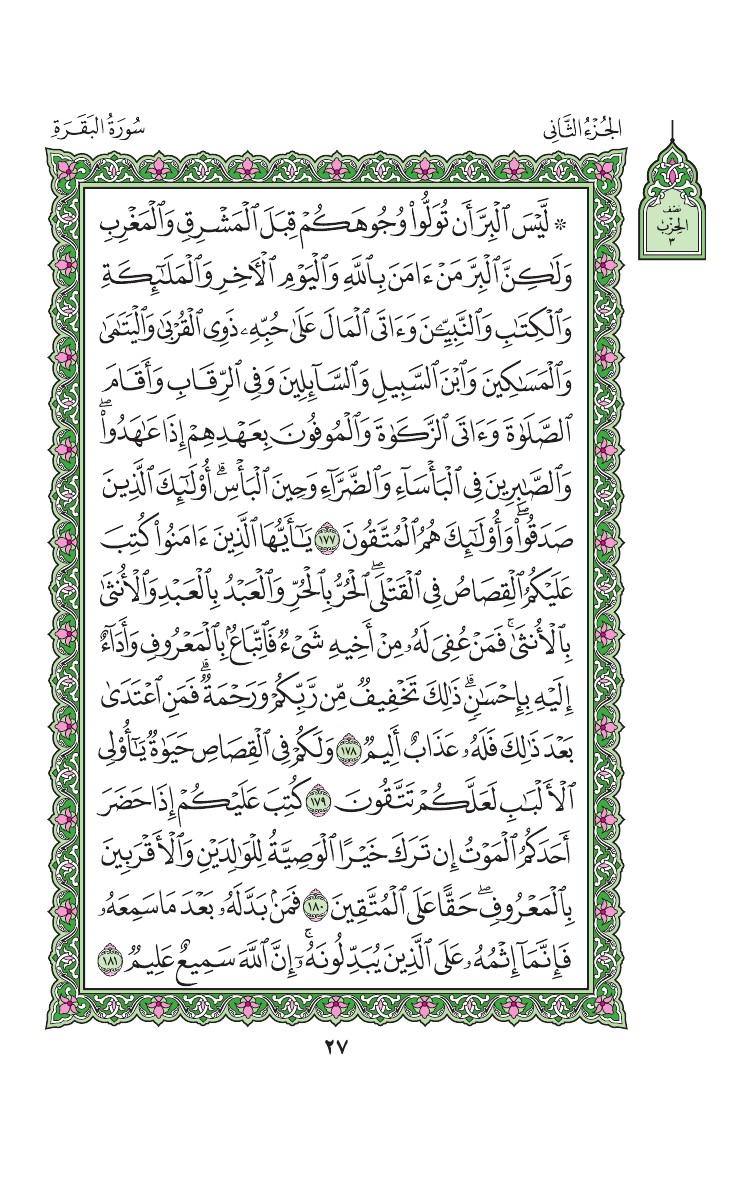 سُورَةُ البَقَرَةِ
الجُزْءُ الثَّانِي
نِصْف
الحِزْبِ
٣
۞ لَّيْسَ ٱلْبِرَّ أَن تُوَلُّوا۟ وُجُوهَكُمْ قِبَلَ ٱلْمَشْرِقِ وَٱلْمَغْرِبِ
وَلَٰكِنَّ ٱلْبِرَّ مَنْ ءَامَنَ بِٱللَّهِ وَٱلْيَوْمِ ٱلْءَاخِرِ وَٱلْمَلَٰٓئِكَةِ
وَٱلْكِتَٰبِ وَٱلنَّبِيِّۦنَ وَءَاتَى ٱلْمَالَ عَلَىٰ حُبِّهِۦ ذَوِى ٱلْقُرْبَىٰ وَٱلْيَتَٰمَىٰ
وَٱلْمَسَٰكِينَ وَٱبْنَ ٱلسَّبِيلِ وَٱلسَّآئِلِينَ وَفِى ٱلرِّقَابِ وَأَقَامَ
ٱلصَّلَوٰةَ وَءَاتَى ٱلزَّكَوٰةَ وَٱلْمُوفُونَ بِعَهْدِهِمْ إِذَا عَٰهَدُوا۟ ۖ
وَٱلصَّٰبِرِينَ فِى ٱلْبَأْسَآءِ وَٱلضَّرَّآءِ وَحِينَ ٱلْبَأْسِ ۗ أُو۟لَٰٓئِكَ ٱلَّذِينَ
صَدَقُوا۟ ۖ وَأُو۟لَٰٓئِكَ هُمُ ٱلْمُتَّقُونَ ١٧٧ يَٰٓأَيُّهَا ٱلَّذِينَ ءَامَنُوا۟ كُتِبَ
عَلَيْكُمُ ٱلْقِصَاصُ فِى ٱلْقَتْلَى ۖ ٱلْحُرُّ بِٱلْحُرِّ وَٱلْعَبْدُ بِٱلْعَبْدِ وَٱلْأُنثَىٰ
بِٱلْأُنثَىٰ ۚ فَمَنْ عُفِىَ لَهُۥ مِنْ أَخِيهِ شَىْءٌ فَٱتِّبَاعٌۢ بِٱلْمَعْرُوفِ وَأَدَآءٌ
إِلَيْهِ بِإِحْسَٰنٍ ۗ ذَٰلِكَ تَخْفِيفٌ مِّن رَّبِّكُمْ وَرَحْمَةٌ ۗ فَمَنِ ٱعْتَدَىٰ
بَعْدَ ذَٰلِكَ فَلَهُۥ عَذَابٌ أَلِيمٌ ١٧٨ وَلَكُمْ فِى ٱلْقِصَاصِ حَيَوٰةٌ يَٰٓأُو۟لِى
ٱلْأَلْبَٰبِ لَعَلَّكُمْ تَتَّقُونَ ١٧٩ كُتِبَ عَلَيْكُمْ إِذَا حَضَرَ
أَحَدَكُمُ ٱلْمَوْتُ إِن تَرَكَ خَيْرًا ٱلْوَصِيَّةُ لِلْوَٰلِدَيْنِ وَٱلْأَقْرَبِينَ
بِٱلْمَعْرُوفِ ۖ حَقًّا عَلَى ٱلْمُتَّقِينَ ١٨٠ فَمَنۢ بَدَّلَهُۥ بَعْدَ مَا سَمِعَهُۥ
فَإِنَّمَآ إِثْمُهُۥ عَلَى ٱلَّذِينَ يُبَدِّلُونَهُۥٓ ۚ إِنَّ ٱللَّهَ سَمِيعٌ عَلِيمٌ ١٨١
٢٧